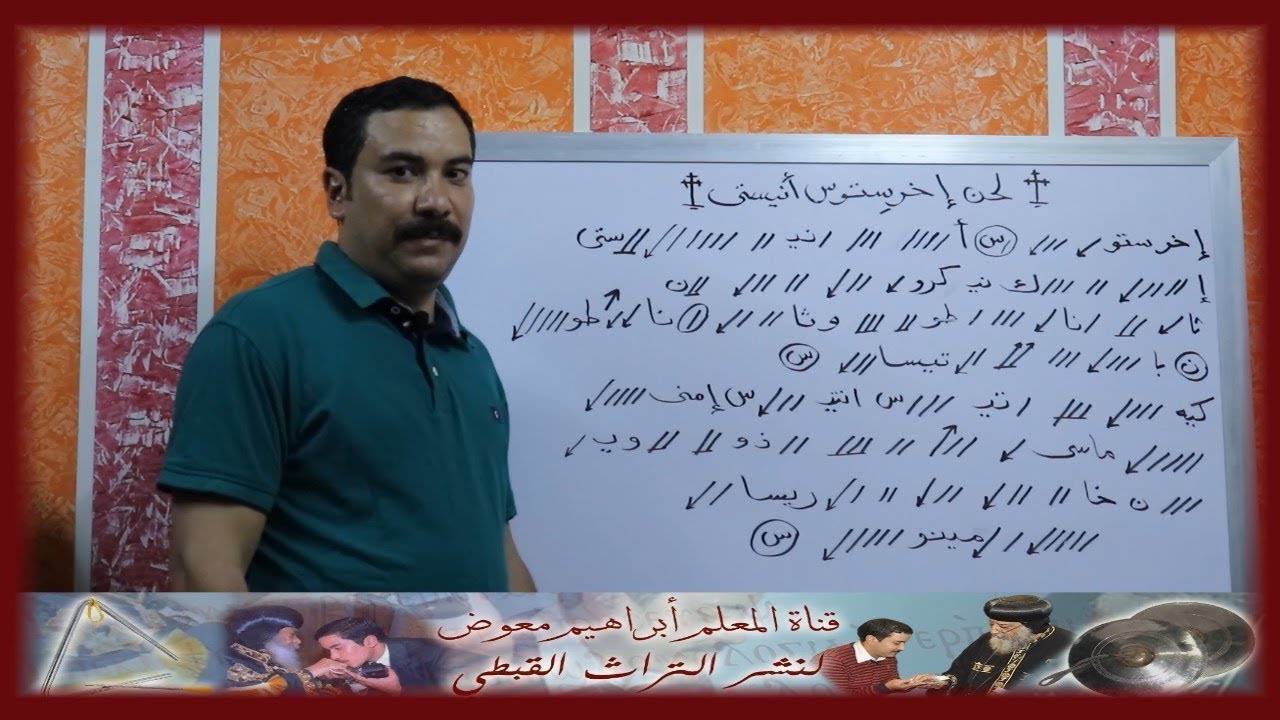 لحن إخرستوس أنيستى
إخرستو ↙ /// (س) أ //// /// انيـ // //// ↙ // ستى
إ ////↙ // ///ك نيـ كرو ↙ //↙ //↙ // //↙ //ن
ثا ↙/ // انا ↙/ /// / طو // /// وثا // //↙ (ا) نا ↙/↗ طو ////↙
(ن) با ///↙ /// ↗↗ // ↙/ تيسا ///↙ (س)
كيه ///↙ /// اتيـ ///س انتيـ //↙س إمنى ////↙
////↙ ماسى ↙ //↗/ // /// // ذو // // ويـ ↙
/// ن خا // //↙ //↙ //↙ // /↙ ريسا //↙
////↙ / ↙/ مينو ////↙ (س)
قناة المعلم أبراهيم معوض
لنشر التراث القبطى